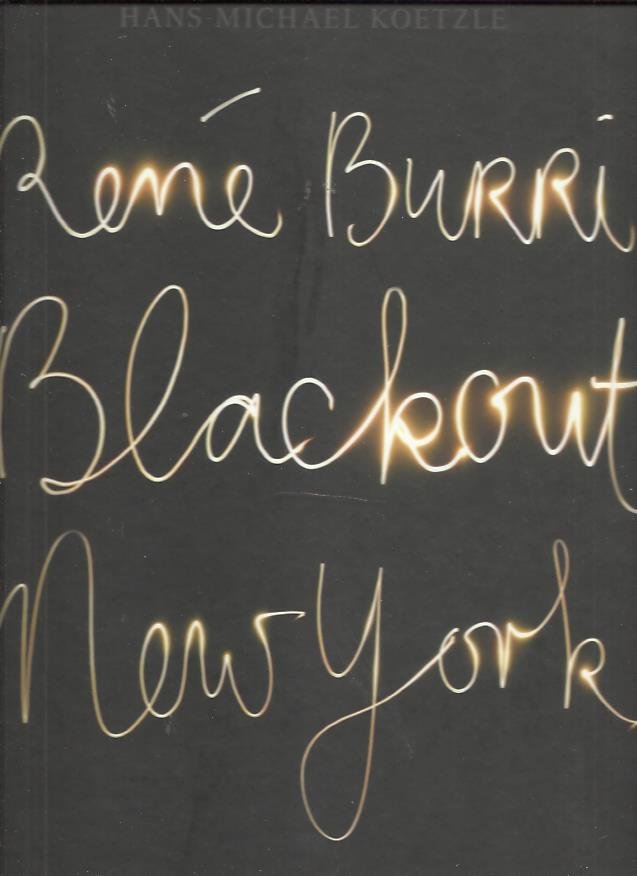 HANS-MICHAEL KOETZLE
René Burri
Blackout
New York